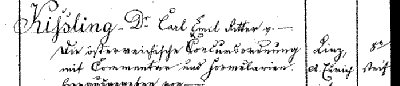 Kißling - Dr. Carl Emil Ritter v. —
Die österreichische Concursordnung Linz, 8°
mit Commentar und Formularien. steif
herausgegeben von —